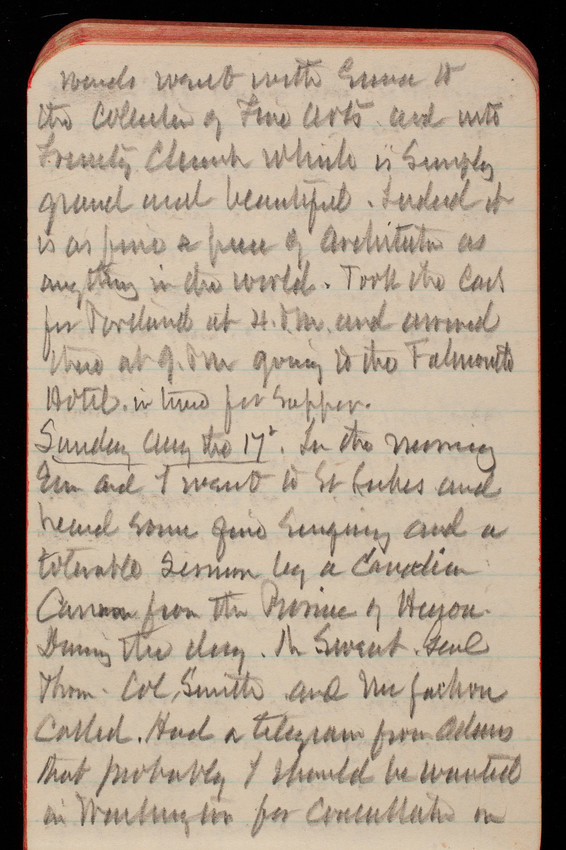 wards went with Emma to
the Collection of Fine Arts and into
Trinity Church which is simply
grand and beautiful. Indeed it
is as fine a piece of Architecture as
anything in the world. Took the Cars
for Portland at 4. P.M. and arrived
there at 9. P.M going to the Falmouth
Hotel. in time for Supper.
Sunday Aug the 17th. In the morning
Em and I went to St Lukes and
heard some fine singing and a
tolerable sermon by a Canadian
Cannon from the Province of
During the day. Mr Sweat. Genl
Thom. Col. Smith and
Called. Had a telegram from Adams
that probably I should be wanted
in Washington for Consultation on